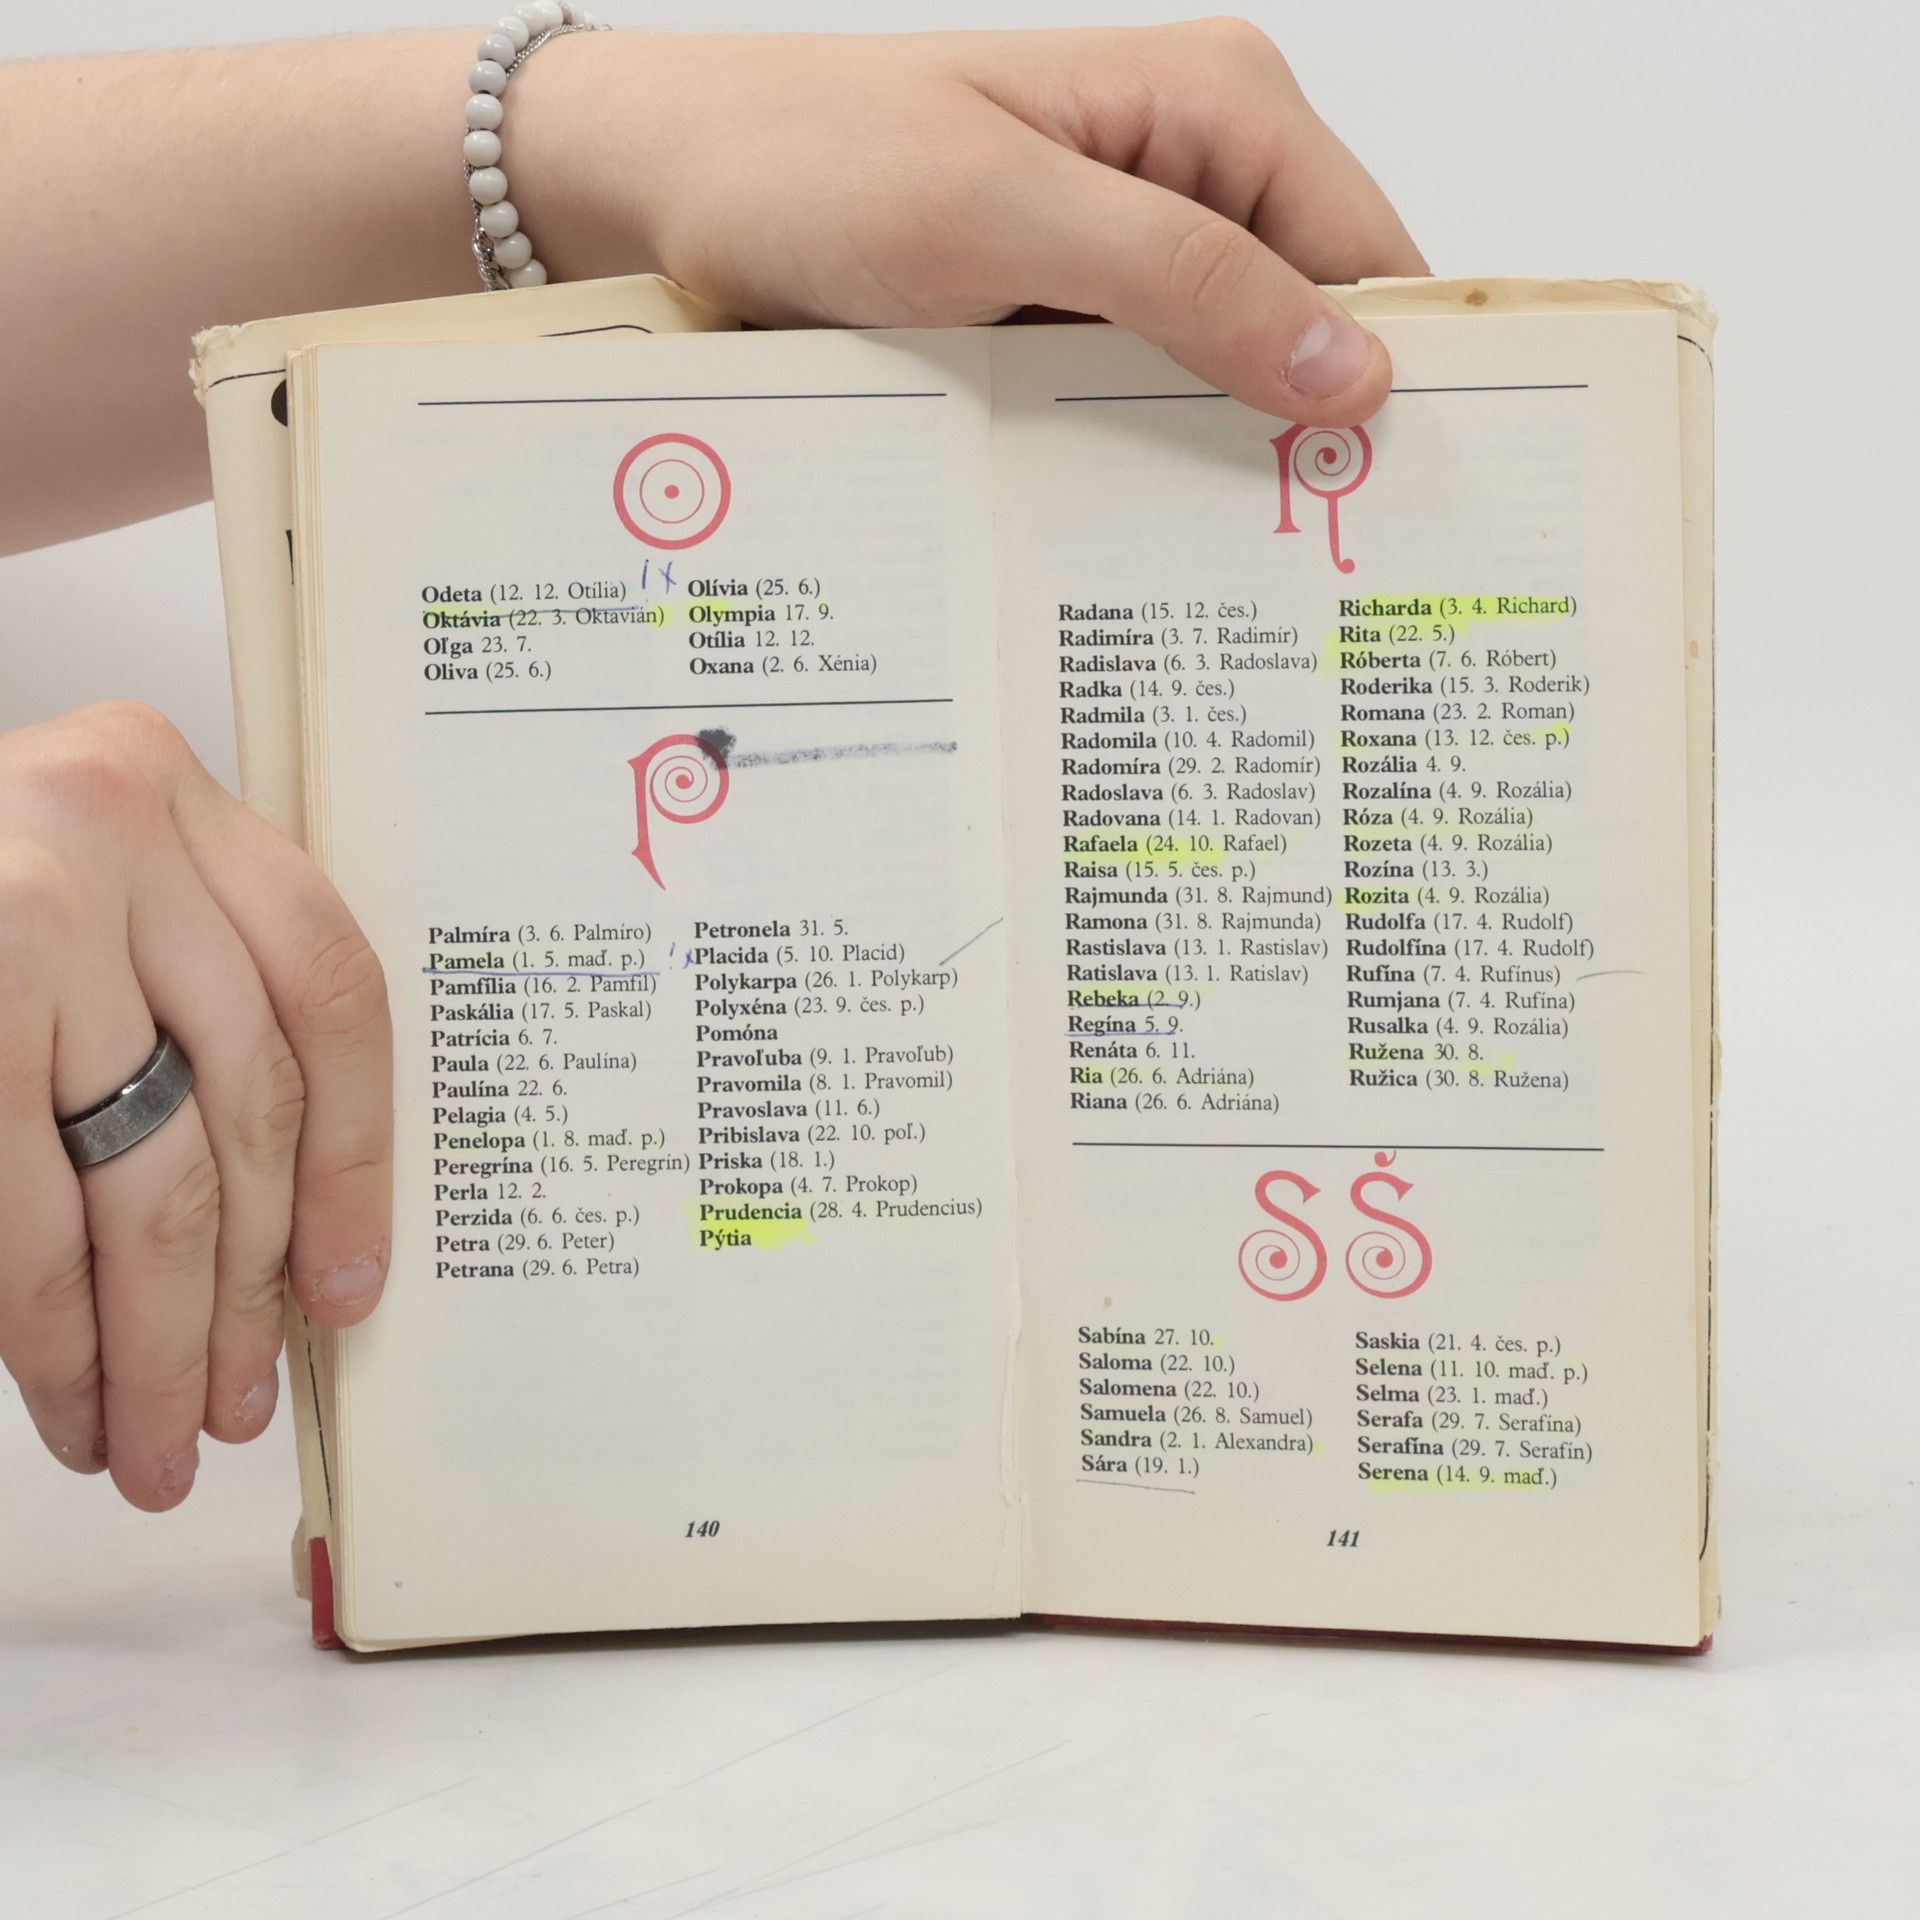 O
Odeta (12. 12. Otília)
Oktávia (22. 3. Oktavián)
Oľga 23. 7.
Oliva (25. 6.)
Olívia (25. 6.)
Olympia 17. 9.
Otília 12. 12.
Oxana (2. 6. Xénia)
P
Palmíra (3. 6. Palmíro)
Pamela (1. 5. maď. p.)
Pamfília (16. 2. Pamfil)
Paskália (17. 5. Paskal)
Patrícia 6. 7.
Paula (22. 6. Paulína)
Paulína 22. 6.
Pelagia (4. 5.)
Penelopa (1. 8. maď. p.)
Peregrína (16. 5. Peregrín)
Perla 12. 2.
Perzida (6. 6. čes. p.)
Petra (29. 6. Peter)
Petrana (29. 6. Petra)
Petronela 31. 5.
Placida (5. 10. Placid)
Polykarpa (26. 1. Polykarp)
Polyxéna (23. 9. čes. p.)
Pomóna
Pravoľuba (9. 1. Pravoľub)
Pravomila (8. 1. Pravomil)
Pravoslava (11. 6.)
Pribislava (22. 10. poľ.)
Priska (18. 1.)
Prokopa (4. 7. Prokop)
Prudencia (28. 4. Prudencius)
Pýtia
140
R
Radana (15. 12. čes.)
Radimíra (3. 7. Radimír)
Radislava (6. 3. Radoslava)
Radka (14. 9. čes.)
Radmila (3. 1. čes.)
Radomila (10. 4. Radomil)
Radomíra (29. 2. Radomír)
Radoslava (6. 3. Radoslav)
Radovana (14. 1. Radovan)
Rafaela (24. 10. Rafael)
Raisa (15. 5. čes. p.)
Rajmunda (31. 8. Rajmund)
Ramona (31. 8. Rajmunda)
Rastislava (13. 1. Rastislav)
Ratislava (13. 1. Ratislav)
Rebeka (2. 9.)
Regína 5. 9.
Renáta 6. 11.
Ria (26. 6. Adriána)
Riana (26. 6. Adriána)
Richarda (3. 4. Richard)
Rita (22. 5.)
Róberta (7. 6. Róbert)
Roderika (15. 3. Roderik)
Romana (23. 2. Roman)
Roxana (13. 12. čes. p.)
Rozália 4. 9.
Rozalína (4. 9. Rozália)
Róza (4. 9. Rozália)
Rozeta (4. 9. Rozália)
Rozína (13. 3.)
Rozita (4. 9. Rozália)
Rudolfa (17. 4. Rudolf)
Rudolfína (17. 4. Rudolf)
Rufína (7. 4. Rufínus)
Rumjana (7. 4. Rufína)
Rusalka (4. 9. Rozália)
Ružena 30. 8.
Ružica (30. 8. Ružena)
S Š
Sabína 27. 10.
Saloma (22. 10.)
Salomena (22. 10.)
Samuela (26. 8. Samuel)
Sandra (2. 1. Alexandra)
Sára (19. 1.)
Saskia (21. 4. čes. p.)
Selena (11. 10. maď. p.)
Selma (23. 1. maď.)
Serafa (29. 7. Serafína)
Serafína (29. 7. Serafín)
Serena (14. 9. maď.)
141